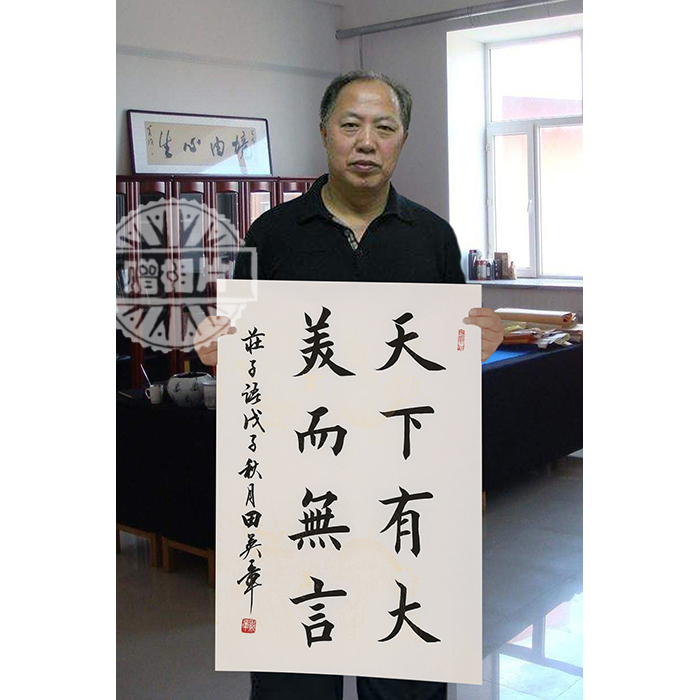 境由心生
赠相片
天下有大
美而無言
莊子語戊子秋月田英章